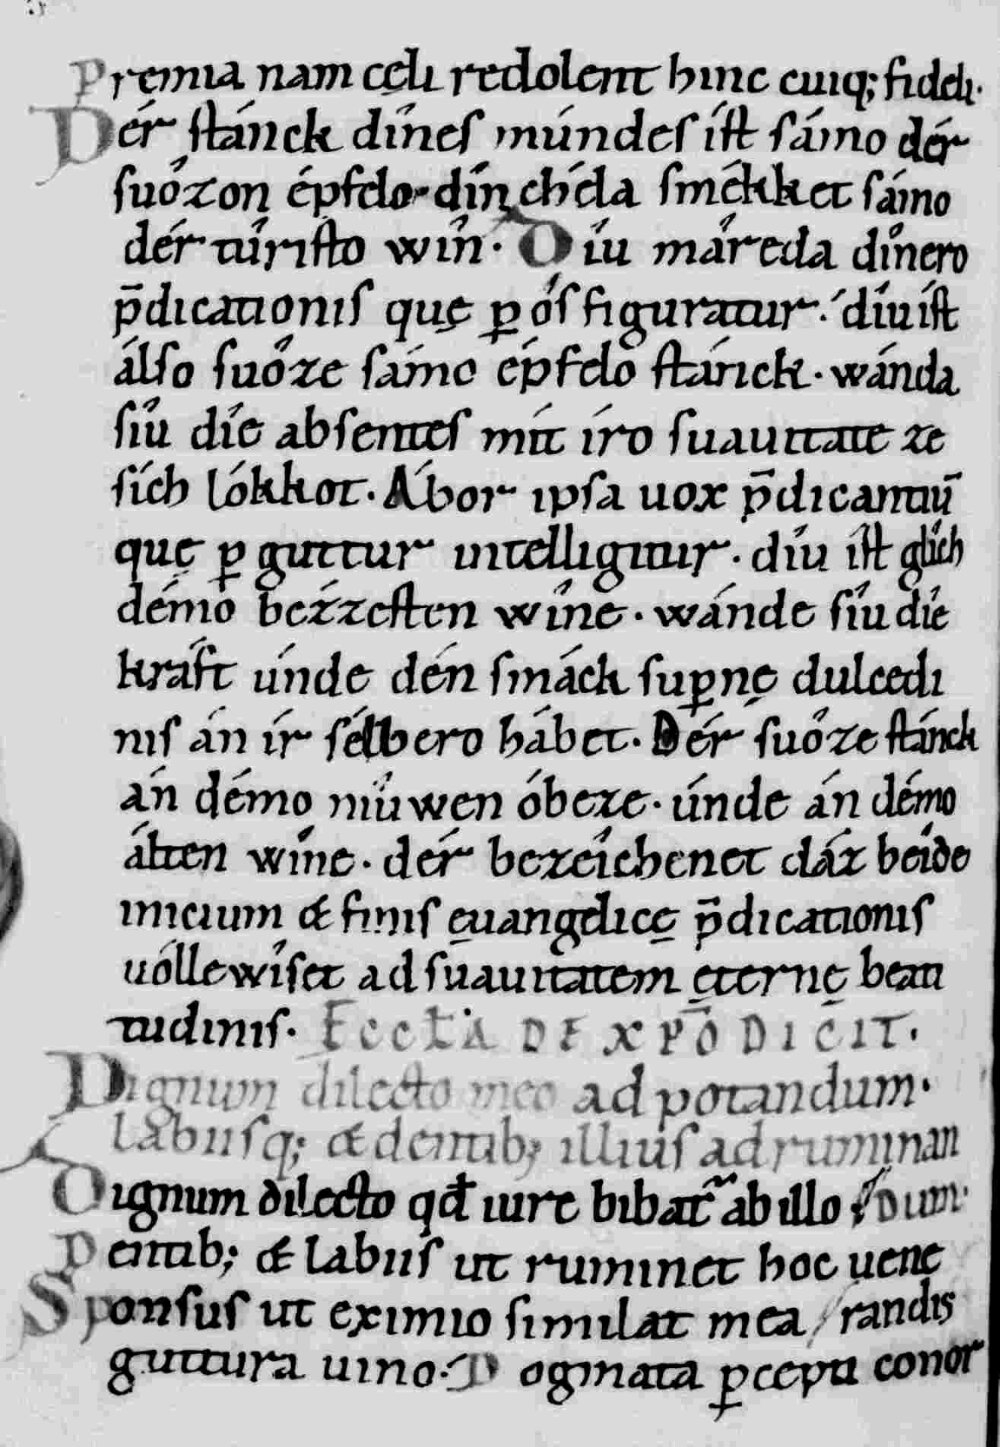 Premia nam cęli redolent hinc cuiq; fideli.
Dér stánck dínes múndes ist sámo dér
suózon épfelo. dín chéla smékket sámo
dér túristo wîn. Díu mǻreda dînero
p̄dicationis quę p̱ ós figuratur. díu ist
álso suóze sámo épfelo stánck. wánda
síu díe absentes mít íro suauitate ze
sích lókkot. Ábor ipsa uox p̄dicantiū
quę p̱ guttur intelligitur. díu íst glîch
démo bézzesten wîne. wánde síu díe
kráft únde dén smáck sup̱nę dulcedi
nis án ír sélbero hábet. Dér suóze stánck
án démo níuwen óbeze. únde án démo
álten wîne. dér bezéichenet dáz béide
inicium & finis euangelicę p̄dicationis
uóllewîset ad suauitatem ęternę beati
tudinis. Eccła de xp̄o dicit.
Dignum dilecto meo ad potandum.
labiisq; & dentib; illius ad ruminan
Dignum dilecto qđ iure bibat᷑ ab illo / dum.
Dentib; & labiis ut ruminet hoc uene
Sponsus ut eximio similat mea / randis
guttura uino. Dogmata p̱cepti conor